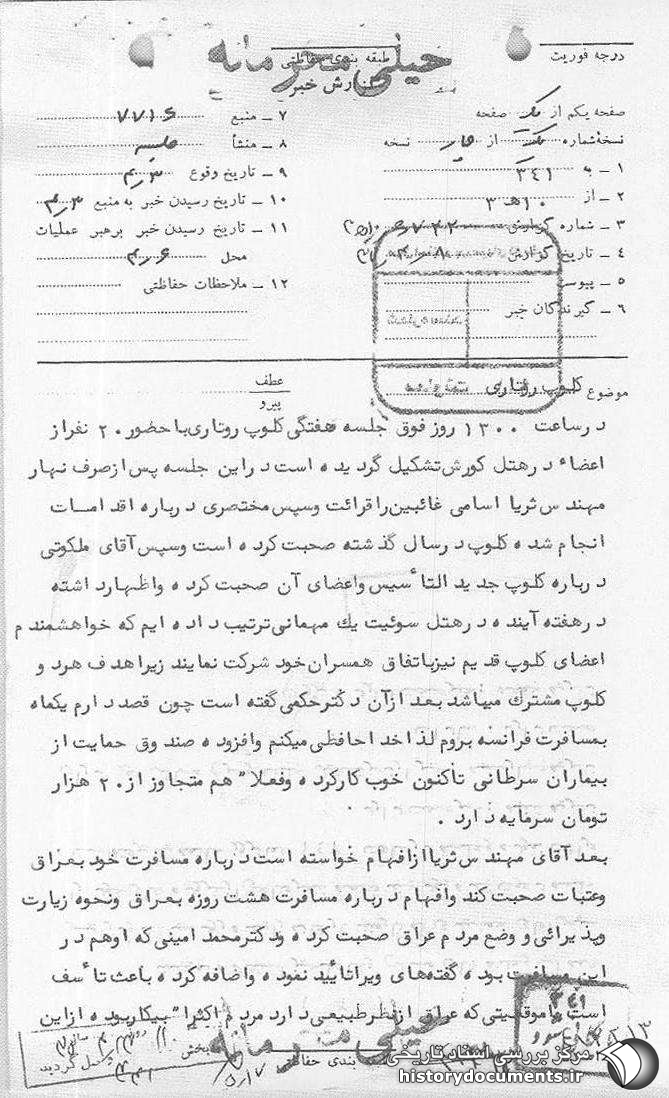 درجه فوریت
طبقه بندی حفاظتی
خیلی محرمانه
گزارش خبر
صفحه یکم از یک صفحه
نسخهٔ شماره یک از چهار نسخه
۱ – به ۳٤۱
۲ – از ۱۰ هـ ۳
۳ – شماره گزارش
۴ – تاریخ گزارش
۵ – پیوست
۶ – گیرندگان خبر
۷ – منبع ۷۷۱۶
۸ – منشأ جلسه
۹ – تاریخ وقوع ۴٫۳
۱۰ – تاریخ رسیدن خبر به منبع ۴٫۳
۱۱ – تاریخ رسیدن خبر برهبر عملیات
محل ۴٫۶
۱۲ – ملاحظات حفاظتی
موضوع کلوپ روتاری
عطف
پیرو
درساعت ۱۳۰۰ روز فوق جلسه هفتگی کلوپ روتاری باحضور ۲۰ نفراز
اعضاء در هتل کورش تشکیل گردیده است دراین جلسه پس ازصرف نهار
مهندس ثریا اسامی غائبین را قرائت وسپس مختصری درباره اقدامات
انجام شده کلوپ در سال گذشته صحبت کرده است وسپس آقای ملکوتی
درباره کلوپ جدید التأسیس واعضای آن صحبت کرده واظهارداشته
درهفته آینده در هتل سوئیت یك مهمانی ترتیب داده ایم که خواهشمندم
اعضای کلوپ قدیم نیزباتفاق همسران خود شرکت نمایند زیرا هدف هرد و
کلوپ مشترك میباشد بعد ازآن دکترحکمی گفته است چون قصد دارم یکماه
بمسافرت فرانسه بروم لذا خداحافظی میکنم وافزوده صندوق حمایت از
بیماران سرطانی تاکنون خوب کارکرده وفعلا" هم متجاوز از ۲۰ هزار
تومان سرمایه دارد .
بعد آقای مهندس ثریا ازافهام خواسته است درباره مسافرت خود بعراق
وعتبات صحبت کند وافهام درباره مسافرت هشت روزه بعراق ونحوه زیارت
وپذیرائی و وضع مردم عراق صحبت کرده ودکترمحمد امینی که اوهم در
این مسافرت بوده گفته‌های ویرا تأیید نموده واضافه کرده باعث تأسف
است باموقعیتی که عراق ازنظرطبیعی دارد مردم اکثرا" بیکاربوده ازاین
خیلی محرمانه
بندی حفاظتی
بخش
تکمیل گردید
۵٫۱۷
۳٤۱
مرکز بررسی اسناد تاریخی
historydocuments.ir